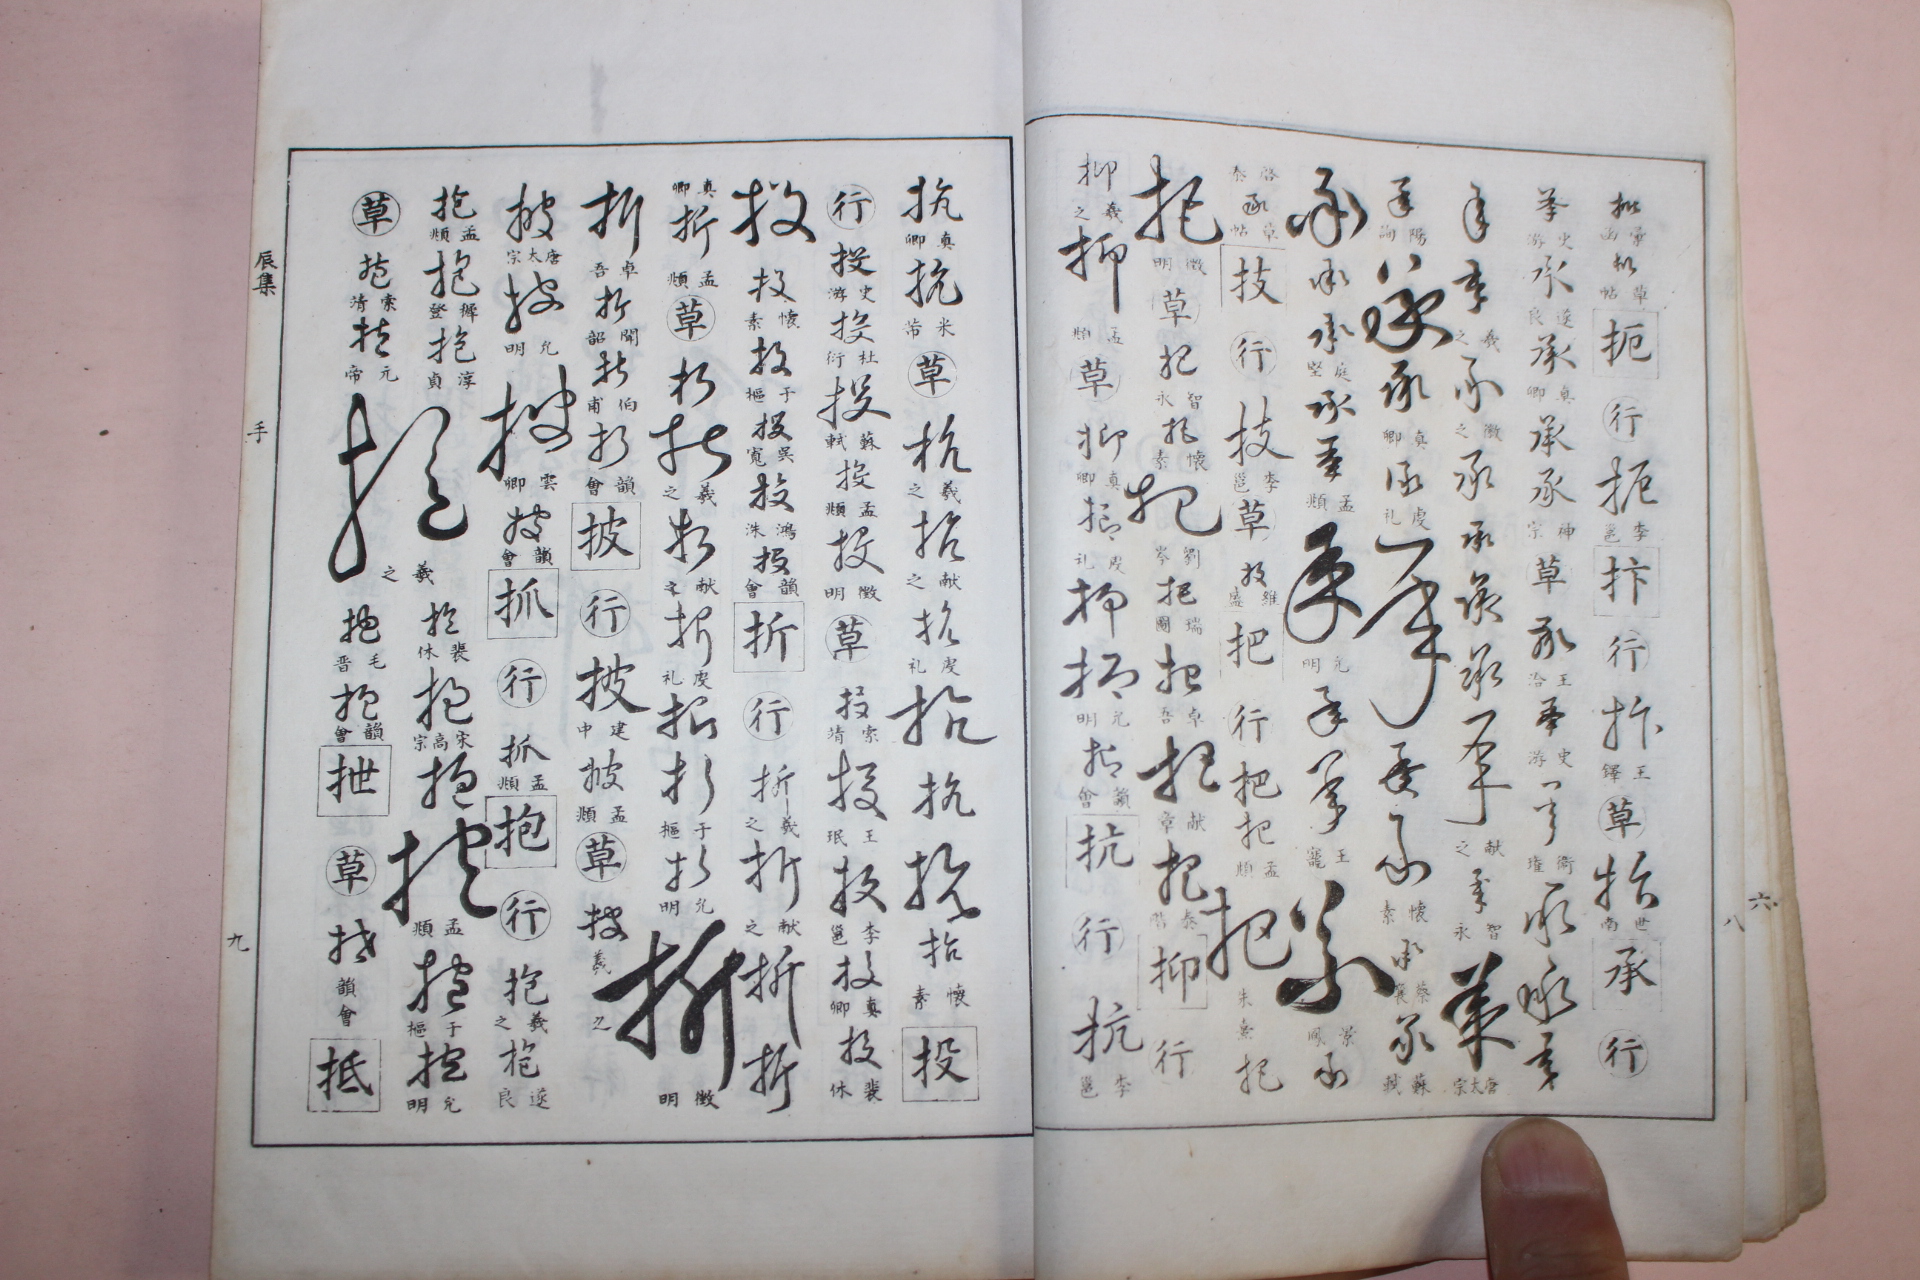 批 彙函 批 草帖 扼 行 扼 李邕 抃 行 抃 王鐸 草 抬 世南 承 行
承 史游 承 遂良 承 真卿 承 承 神宗 草 承 王洽 承 史游 承 衛瓘 承 承 承
承 承 羲之 承 徽之 承 承 承 承 承 献之 承 智永 承 唐太宗
承 陽詢 承 承 真卿 承 虔礼 承 承 承 懷素 承 蔡襄 承 蘇軾
承 承 承 庭堅 承 承 孟頫 承 允明 承 承 王寵 承 景鳳 承
啓泰 承 草帖 技 行 技 李邕 草 技 維盛 把 行 把 把 孟頫 把 朱熹 把
把 徵明 草 把 智永 把 懷素 把 劉岑 把 瑞圖 把 卓吾 把 献章 把 泰階 抑 行
抑 羲之 抑 孟頫 草 抑 真卿 抑 虔礼 抑 抑 允明 抑 韻會 抗 行 抗 李邕
六 八
抗 真卿 抗 米芾 草 抗 羲之 抗 献之 抗 虔礼 抗 抗 抗 抗 懷素 投
行 投 史游 投 杜衍 投 蘇軾 投 孟頫 投 徵明 草 投 索靖 投 王珉 投 李邕 投 真卿 投 裴休
投 投 懷素 投 于樞 投 吳寬 投 鴻洙 投 韻會 折 行 折 羲之 折 献之 折 折
真卿 折 孟頫 草 折 折 羲之 折 献之 折 虔礼 折 折 于樞 折 允明 折 徵明
折 卓吾 折 開韶 折 伯甫 折 韻會 披 行 披 建中 披 孟頫 草 披 羲之
披 唐太宗 披 允明 披 雲卿 披 韻會 抓 行 抓 孟頫 抱 行 抱 羲之 抱 遂良
抱 孟頫 抱 樨登 抱 淳貞 抱 羲之 抱 裴休 抱 宋高宗 抱 抱 孟頫 抱 于樞 抱 允明
草 抱 索靖 抱 元帝 抱 毛晋 抱 韻會 抴 草 抴 韻會 抵
辰集 手 九